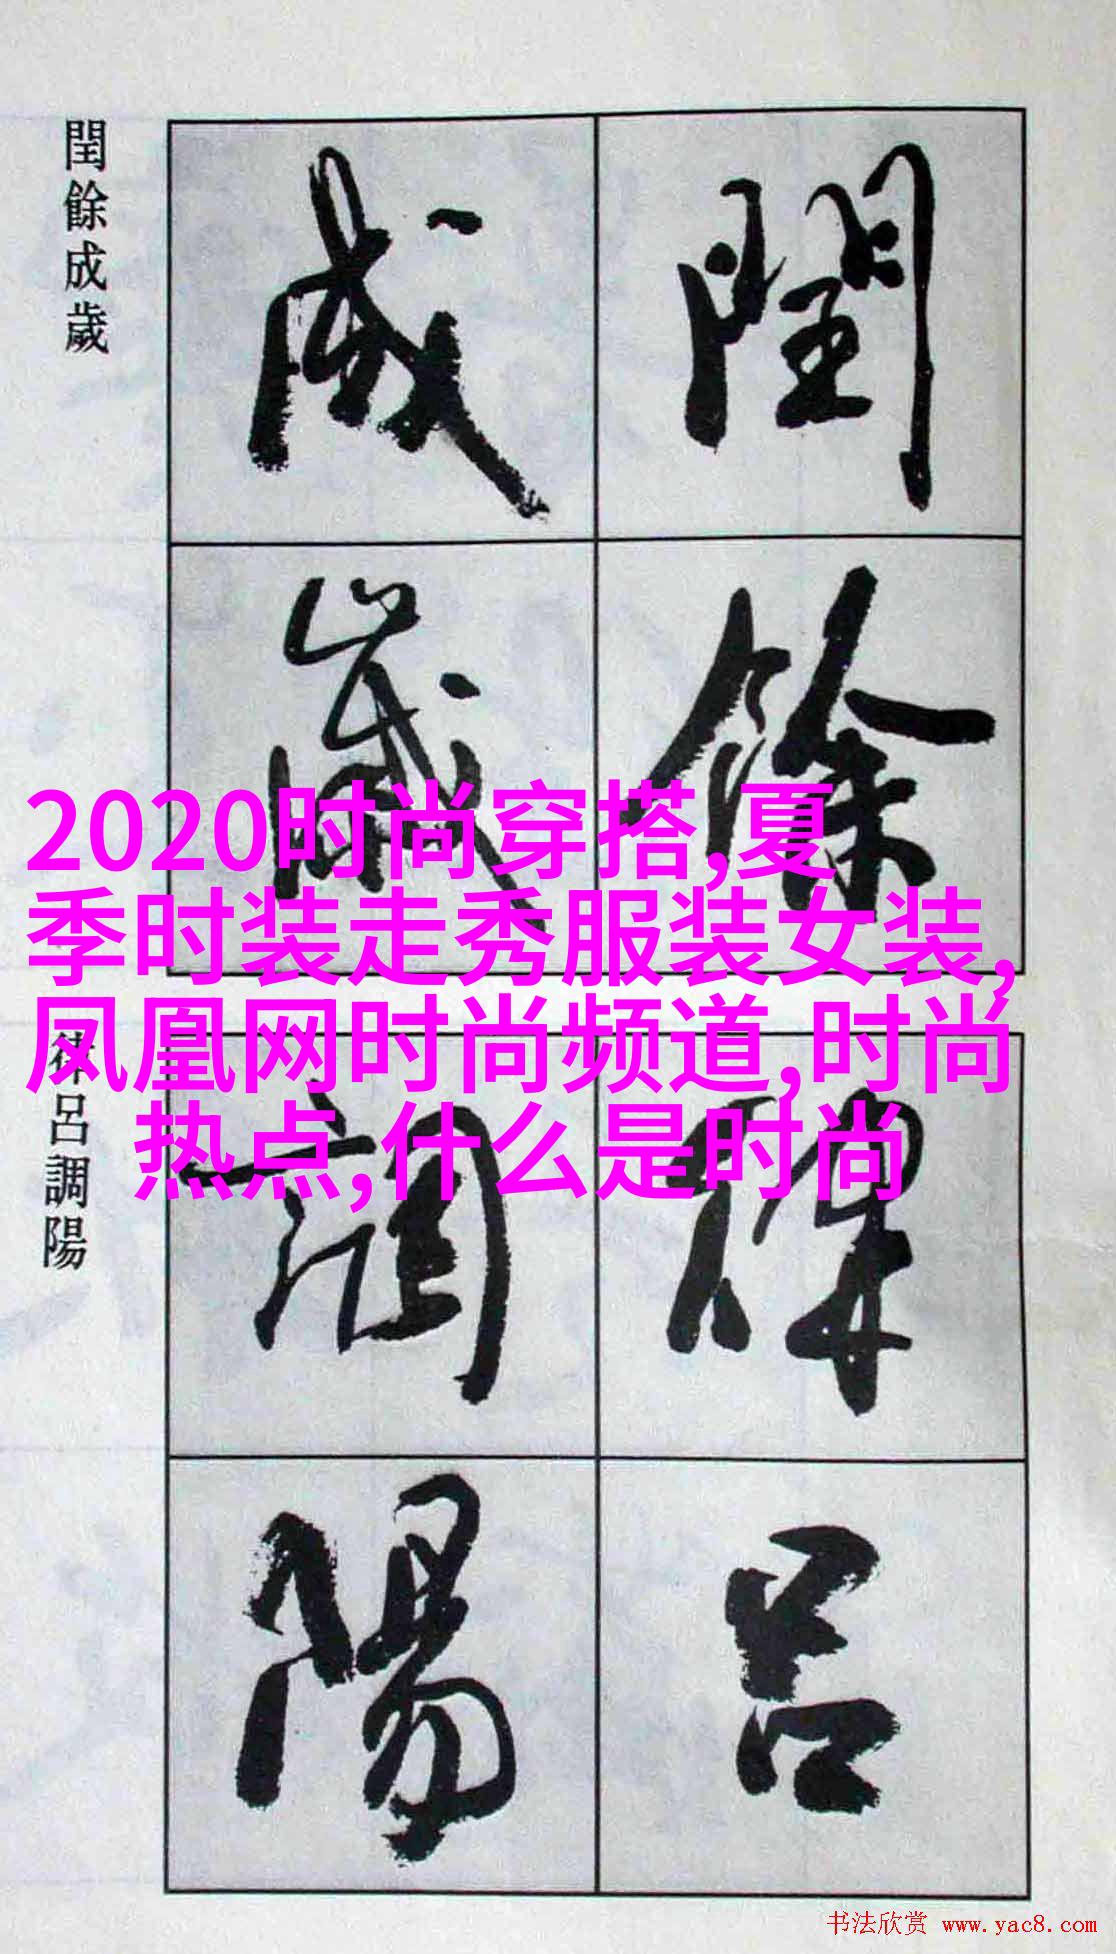 閏餘成歲
閏餘
成歲
2020时尚穿搭,夏
季时装走秀服装女装,
凤凰网时尚频道,时尚
热点,什么是时尚
律呂調陽
律呂
調陽
书法欣赏 www.yac8.com